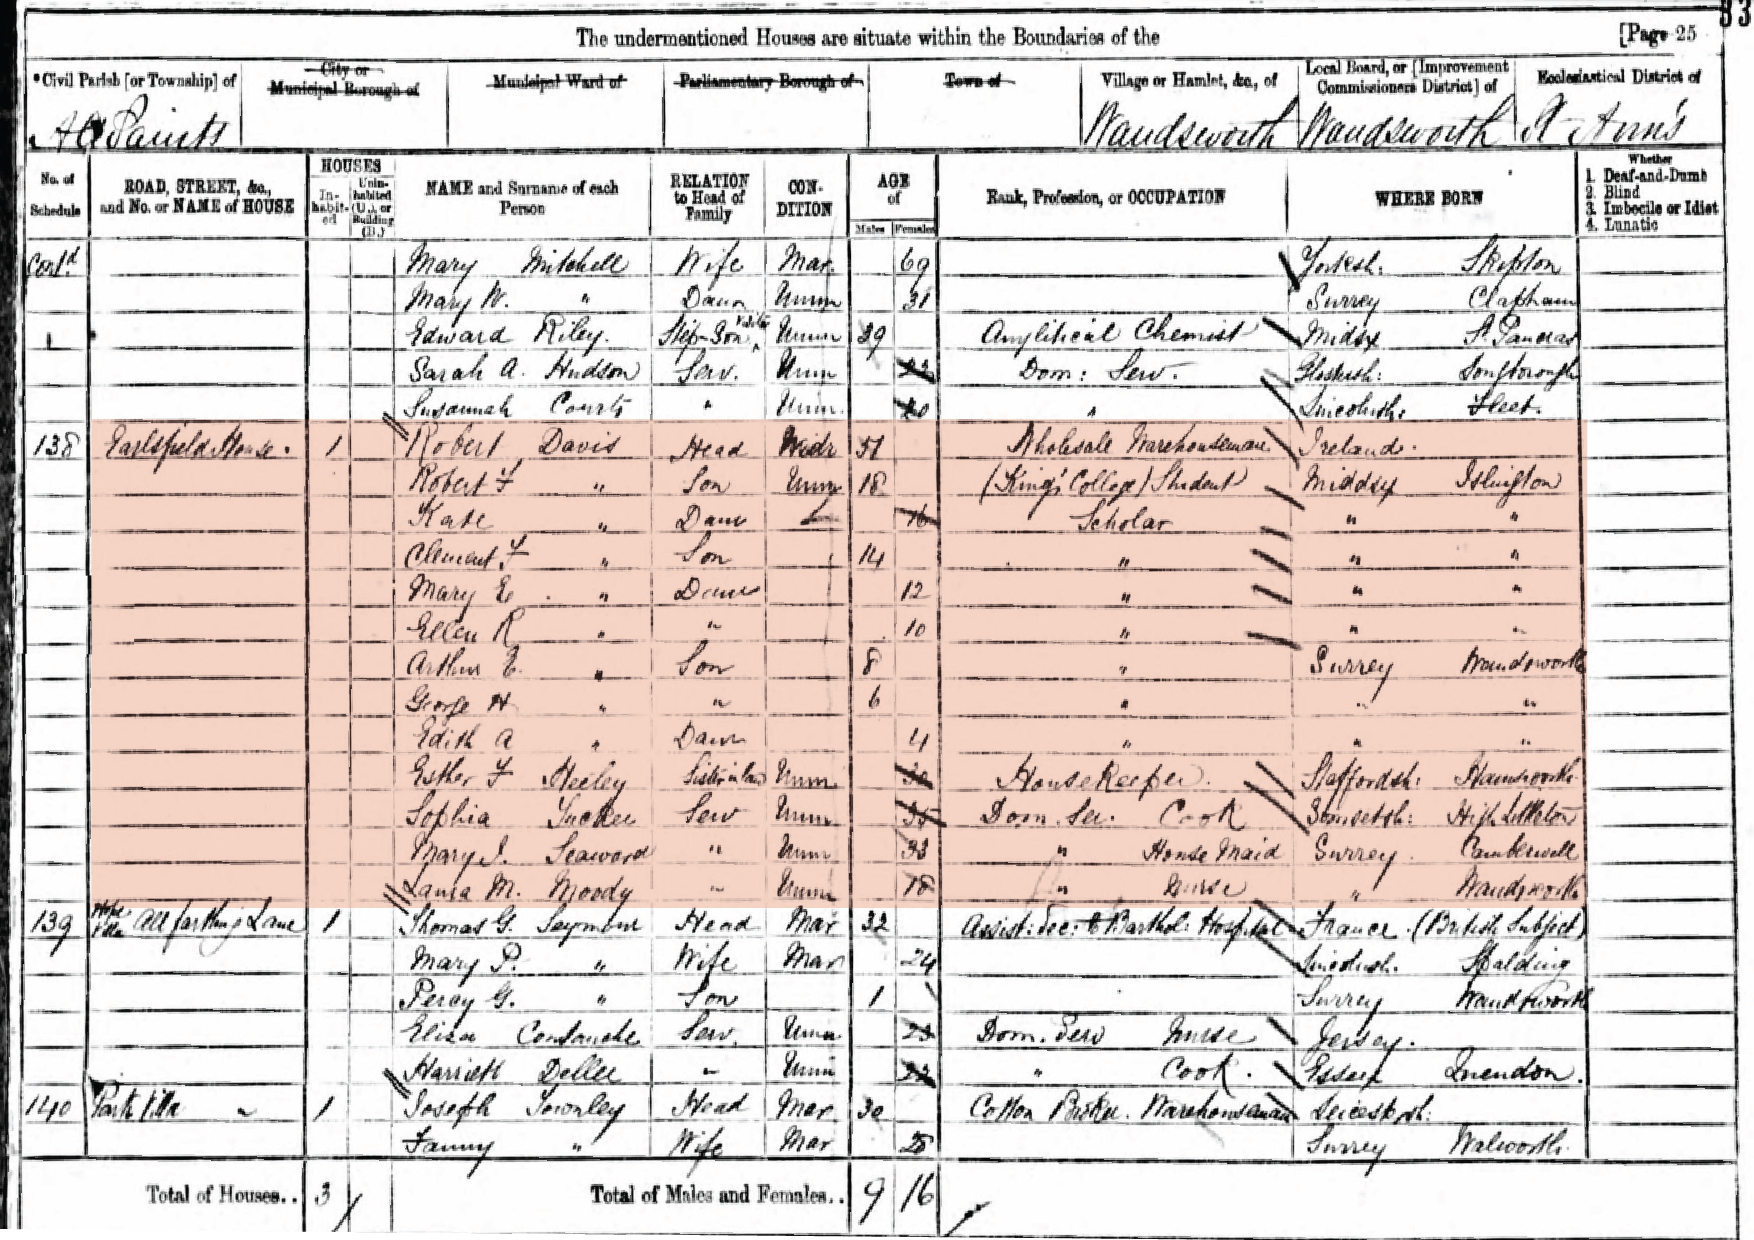 83
The undermentioned Houses are situate within the Boundaries of the [Page 25
*Civil Parish [or Township] of City or Municipal Borough of Municipal Ward of Parliamentary Borough of Town of Village or Hamlet, &c., of Local Board, or [Improvement Commissioners District] of Ecclesiastical District of
All Saints Wandsworth Wandsworth St Ann's
No. of Schedule ROAD, STREET, &c., and No. or NAME of HOUSE HOUSES In-habit-ed Unin-habited (U.), or Building (B.) NAME and Surname of each Person RELATION to Head of Family CON-DITION AGE of Males Females Rank, Profession, or OCCUPATION WHERE BORN Whether 1. Deaf-and-Dumb 2. Blind 3. Imbecile or Idiot 4. Lunatic
Contd Mary Mitchell Wife Mar. 69 Yorksh. Skipton
Mary W. " Daur Unm 31 Surrey Clapham
Edward Riley. Step-Son Visitor Unm 29 Anylitical Chemist Midsx St. Pancras
Sarah A. Hudson Serv. Unm 22 Dom: Serv. Glostsh:
Susannah Courts " Unm. 20 " Lincolnsh. Fleet.
138 Earlsfield House. 1 Robert Davis Head Widr 51 Wholesale Warehouseman Ireland.
Robert F " Son Unm 18 (King's College) Student Middsx Islington
Kate " Daur 16 Scholar " "
Clement F " Son 14 " " "
Mary E. " Daur 12 " " "
Ellen R " " 10 " " "
Arthur E. " Son 8 " Surrey Wandsworth
George H " " 6 " " "
Edith A " Daur 4 " " "
Esther F Heeley Sister in law Unm 30 HouseKeeper. Staffordsh: Handsworth
Sophia Tucker Serv Unm 35 Dom. Ser. Cook Somersetsh: High Littleton
Mary J. Seaword " Unm 33 " House Maid Surrey Camberwell
Laura M. Moody " Unm 18 " Nurse " Wandsworth
139 Hope Villa Allfarthing Lane 1 Thomas G. Seymour Head Mar 32 Assist: Sec: St Barthol: Hospital France. (British Subject)
Mary P. " Wife Mar 24 Lincolnsh. Spalding
Percy G. " Son 1 Surrey Wandsworth
Eliza Serv. Unm 23 Dom. Serv Nurse Jersey.
Harriett Deller " Unm 22 " Cook. Essex Quendon.
140 Park Villa " 1 Joseph Townley Head Mar 30 Cotton Warehouseman Leicestsh:
Fanny " Wife Mar 28 Surrey Walworth.
Total of Houses.. 3 Total of Males and Females.. 9 16